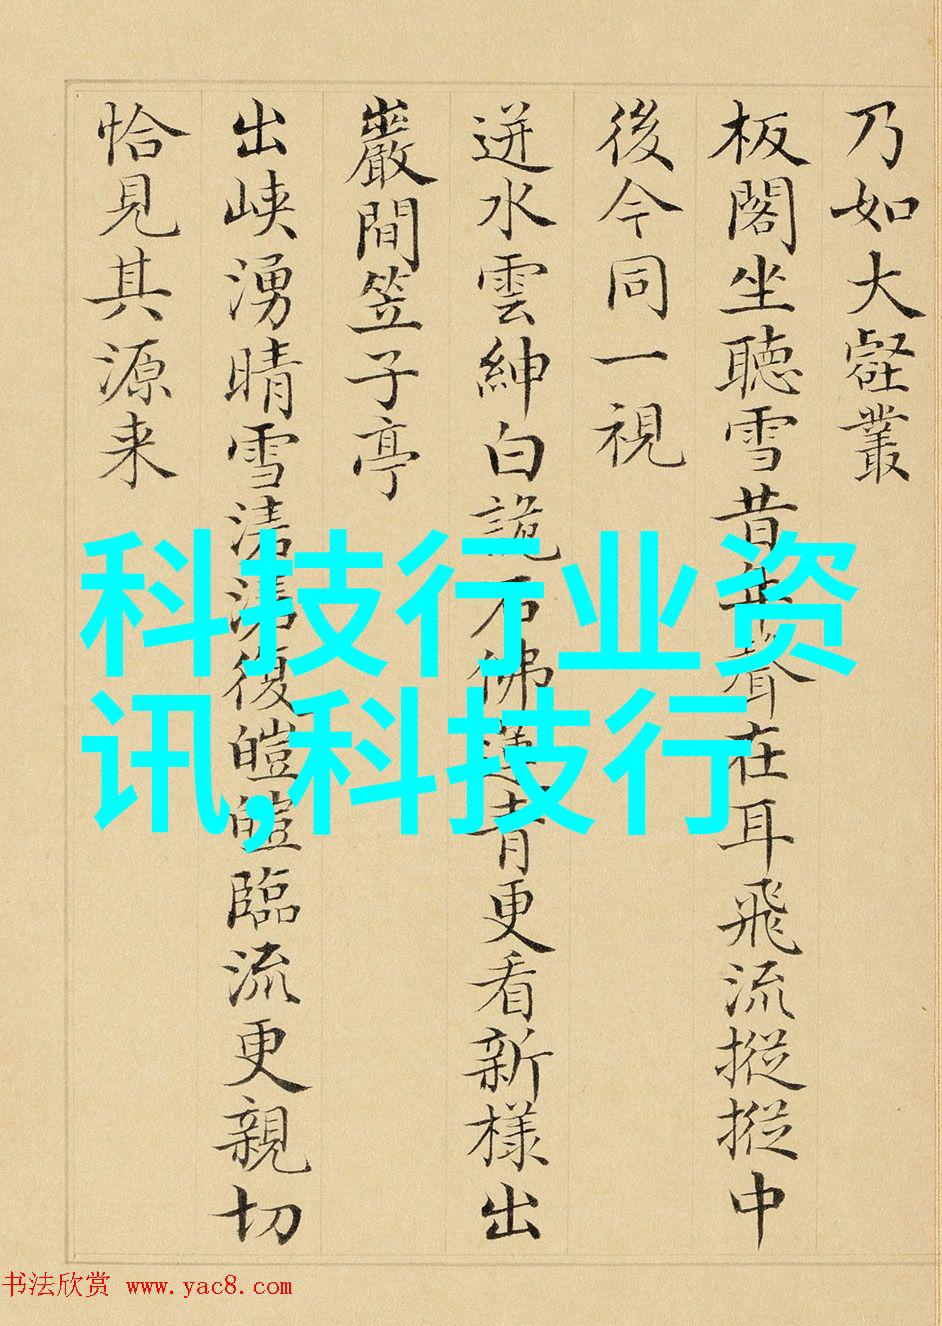 乃如大壑叢
板閣坐聽雪昔年聲在耳飛流摐摐中
後今同一視
迸水雲紳白詭石佛蓮青更看新樣出
巖間笠子亭
出峽湧晴雪清清復皚皚臨流更親切
恰見其源来
科技行业资
讯,科技行
书法欣赏 www.yac8.com